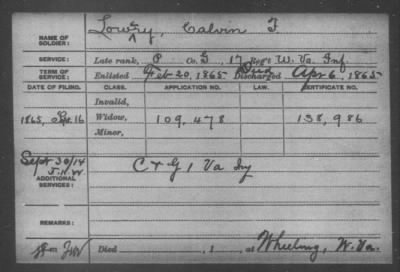 NAME OF SOLDIER: Lowry, Calvin F.
SERVICE: Late rank, P Co. G, 17 Reg't W. Va. Inf.
TERM OF SERVICE: Enlisted Feb 20, 1865 Discharged Died Apr 6, 1865
DATE OF FILING. CLASS. APPLICATION NO. LAW. CERTIFICATE NO.
Invalid,
1865, Apr. 16 Widow, 109,478 138,986
Minor,
Sept 30/14
ADDITIONAL SERVICES: C & G 1 Va Inf
REMARKS:
Died , 1 , at Wheeling, W. Va.